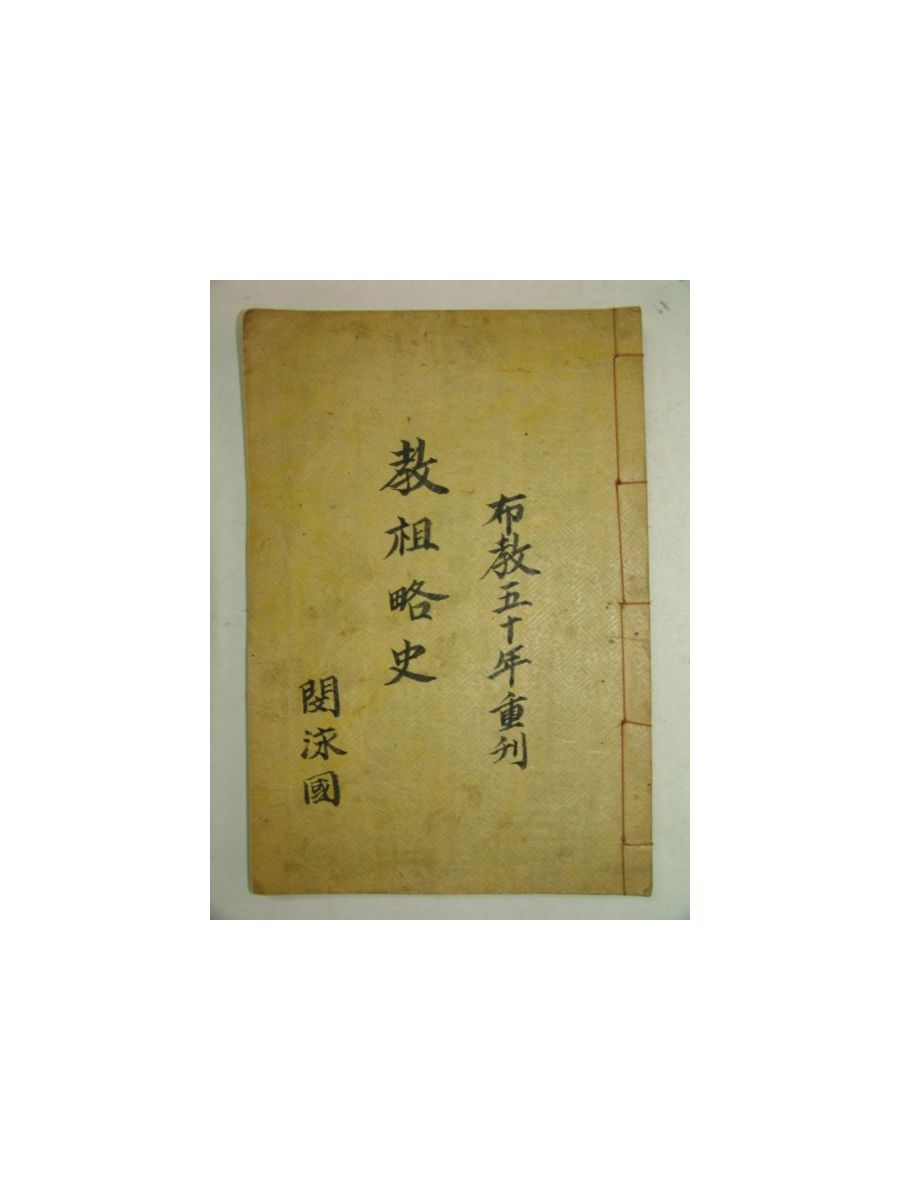 布敎五十年重刊
敎祖略史
閔泳國